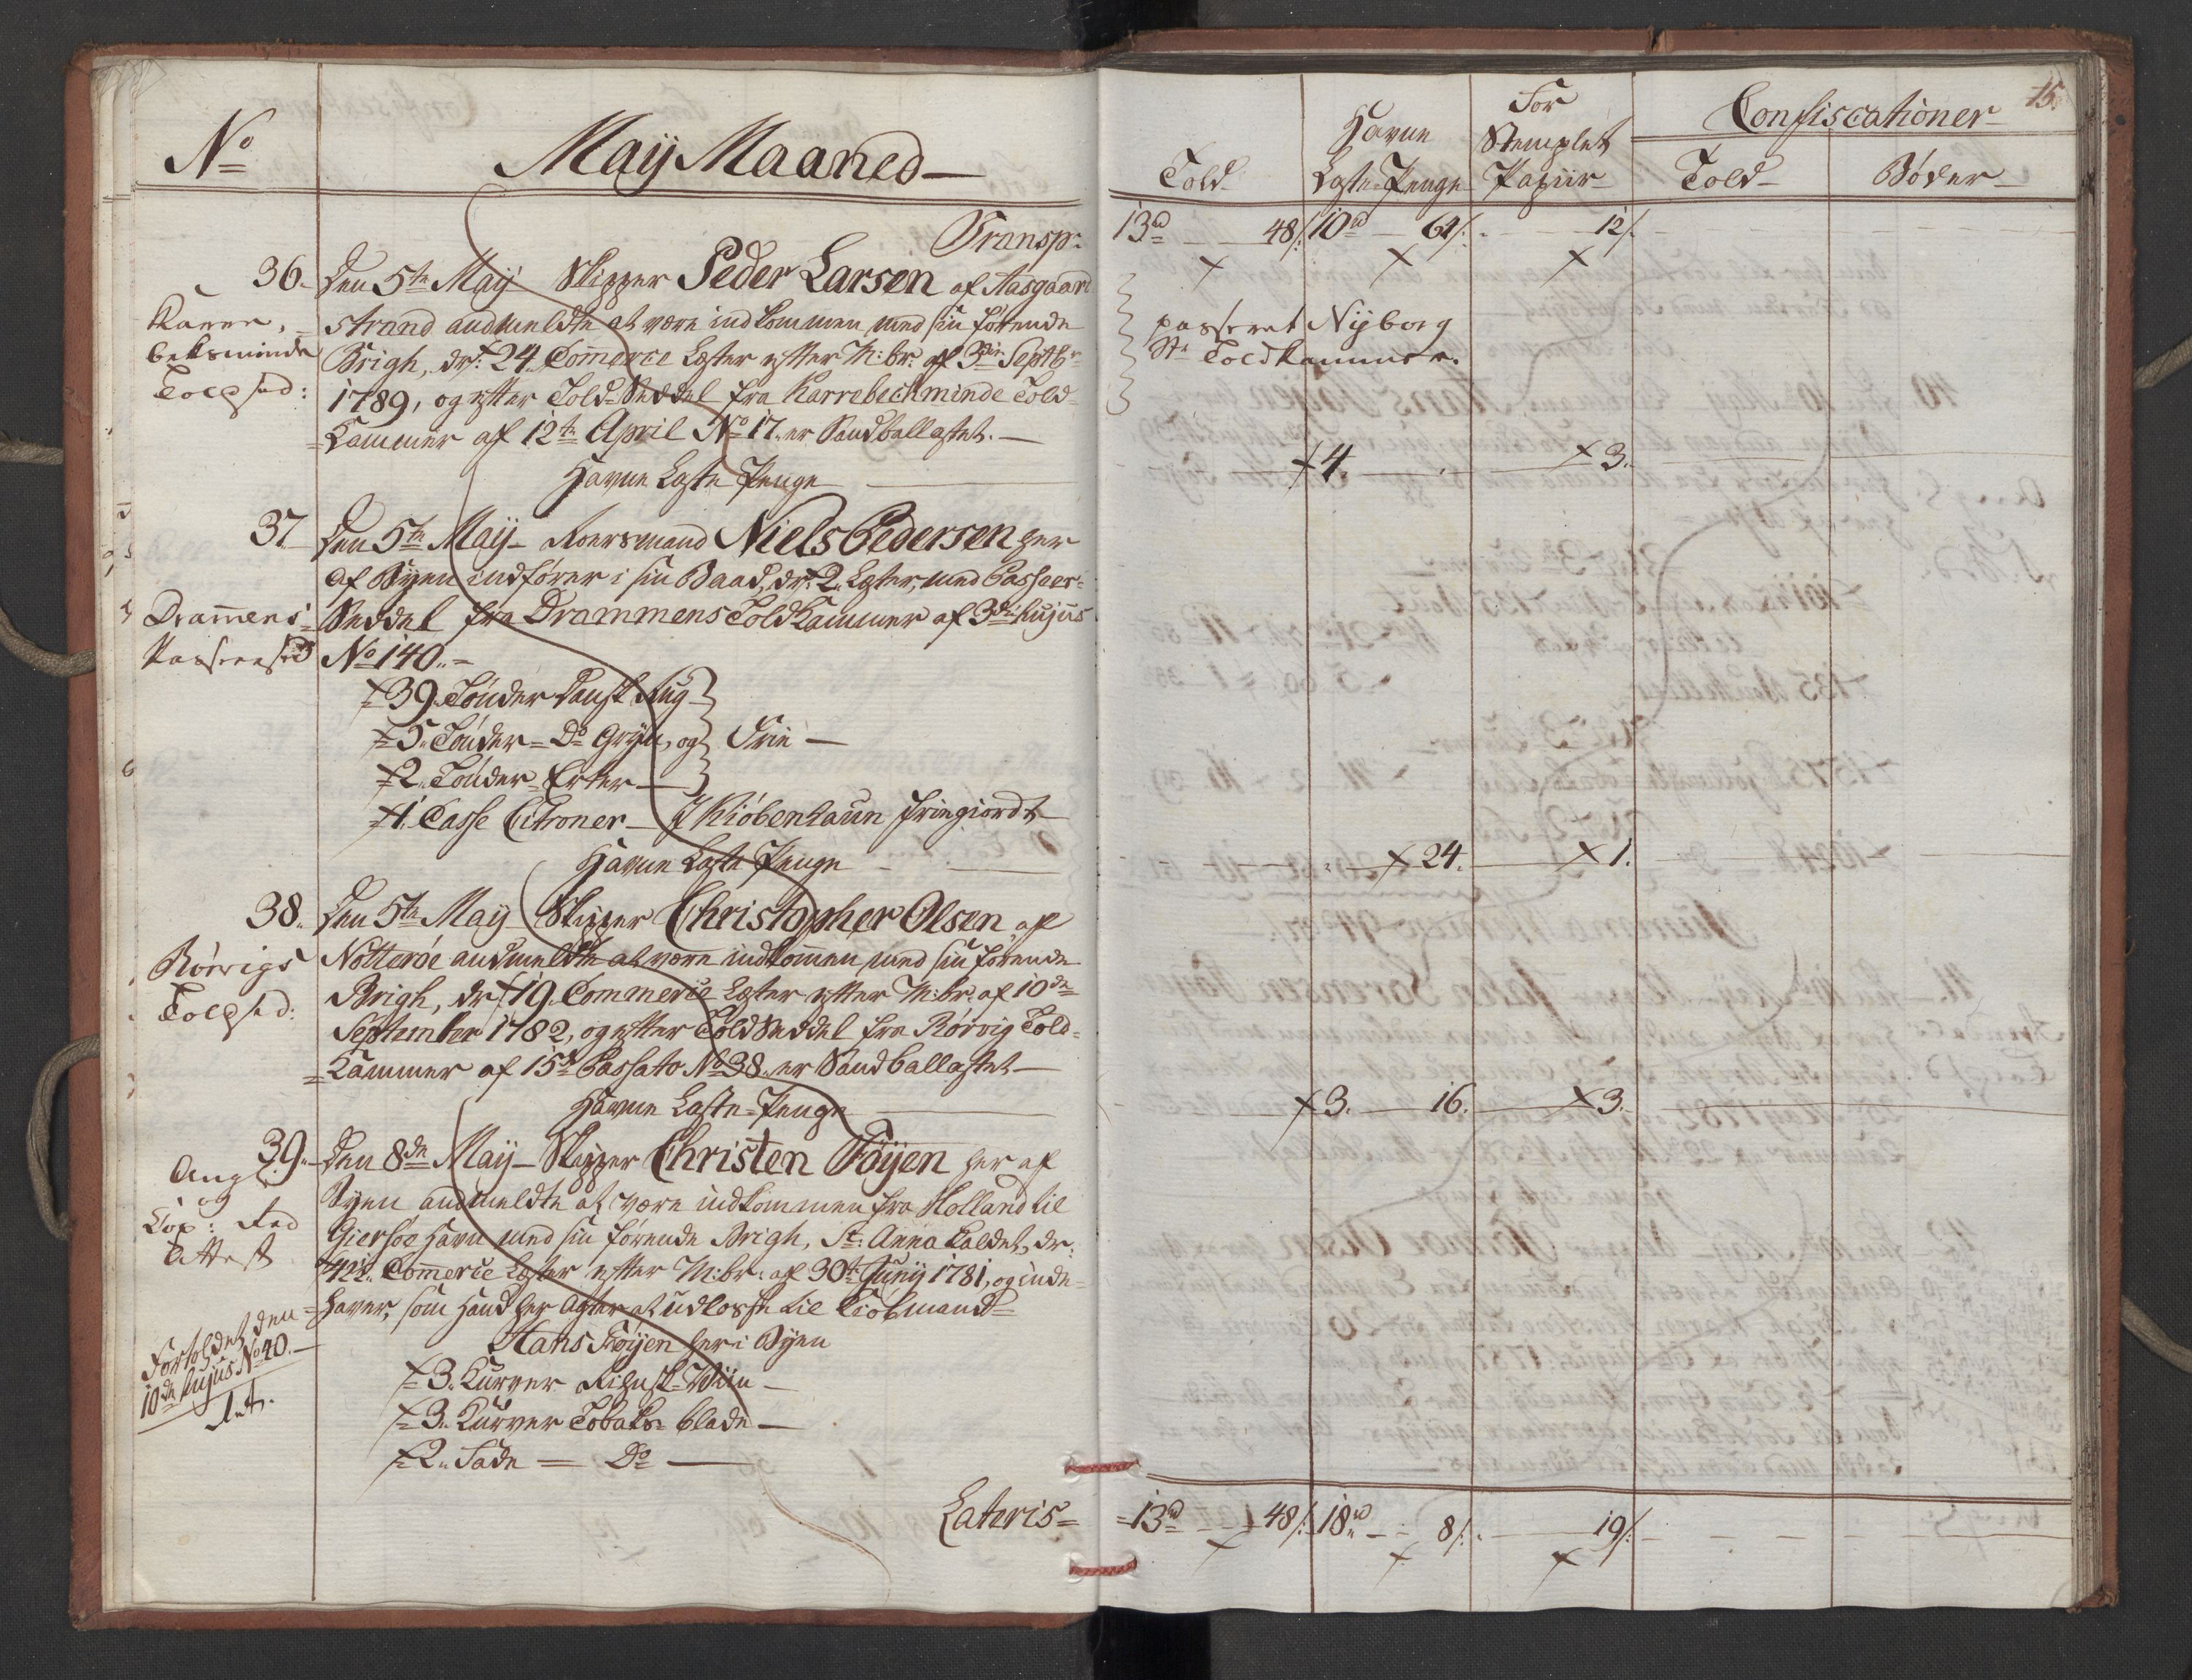 No
Maij Maaned
Transp:
36.
Karre,
beksminde
Toldsed:
Den 5te Maij Skipper Peder Larsen af Aasgaard
strand anmeldte at være indkommen med sin førende
Brigh, dr: 24 Commerce Læster efter M:br: af 3die Septbr
1789, og efter Told-Seddel fra Karrebechminde Told-
Kammer af 12te April No 17. er Sandballastet.
Havne Læste Penge
37
Dramens
Passeersed
Den 5te Maij Roersmand Niels Pedersen her
af Byen indfører i sin Baad, dr: 2. Læster, med Passeer-
Seddel fra Drammens Told Kammer af 3die hujus
No 140.
39. Tønder Dansk Rug
5. Tønder Do Gryn, og
2. Tønder Erter
Frie
1. Casse Citroner I Kiøbenhaun friegiordt
Havne Læste Penge
38.
Rørvigs
Toldsed:
Den 5te Maij Skipper Christopher Olsen af
Nøtterøe anmeldte at være indkommen med sin førende
Brigh, dr: 19. Commerce Læster efter M:br: af 10de
September 1782, og efter Told Seddel fra Rørvig Told-
Kammer af 15de Passato No 38. er Sandballastet
Havne Læste-Penge
39.
Ang:
og
Attest
Den 8de Maij Skipper Christen Føyen her af
Byen anmeldte at være indkommen fra Holland til
Giersøe Havn med sin førende Brigh, St: Anna kaldet, dr:
Commerce Læster efter M:br: af 30te Junij 1781, og inde-
haver, som hand her agter at udlosse til Kiøbmand
Hans Føyen her i Byen
3. Kurver Rihnsk-Viin
3. Kurver Tobaks blade
2. Fade Do
Fortoldet den
10de hujus No 40.
Lateris
15.
Told
Havne
Læste-Penge
For
Stemplet
Papiir
Confiscationer
Told
Bøder
13rd 48/: 10rd 64/: 12/:
passeret Nyborg
Toldkammer.
4. 3.
24. 1.
3. 16. 3.
13rd 48/: 18rd 8/: 19/: